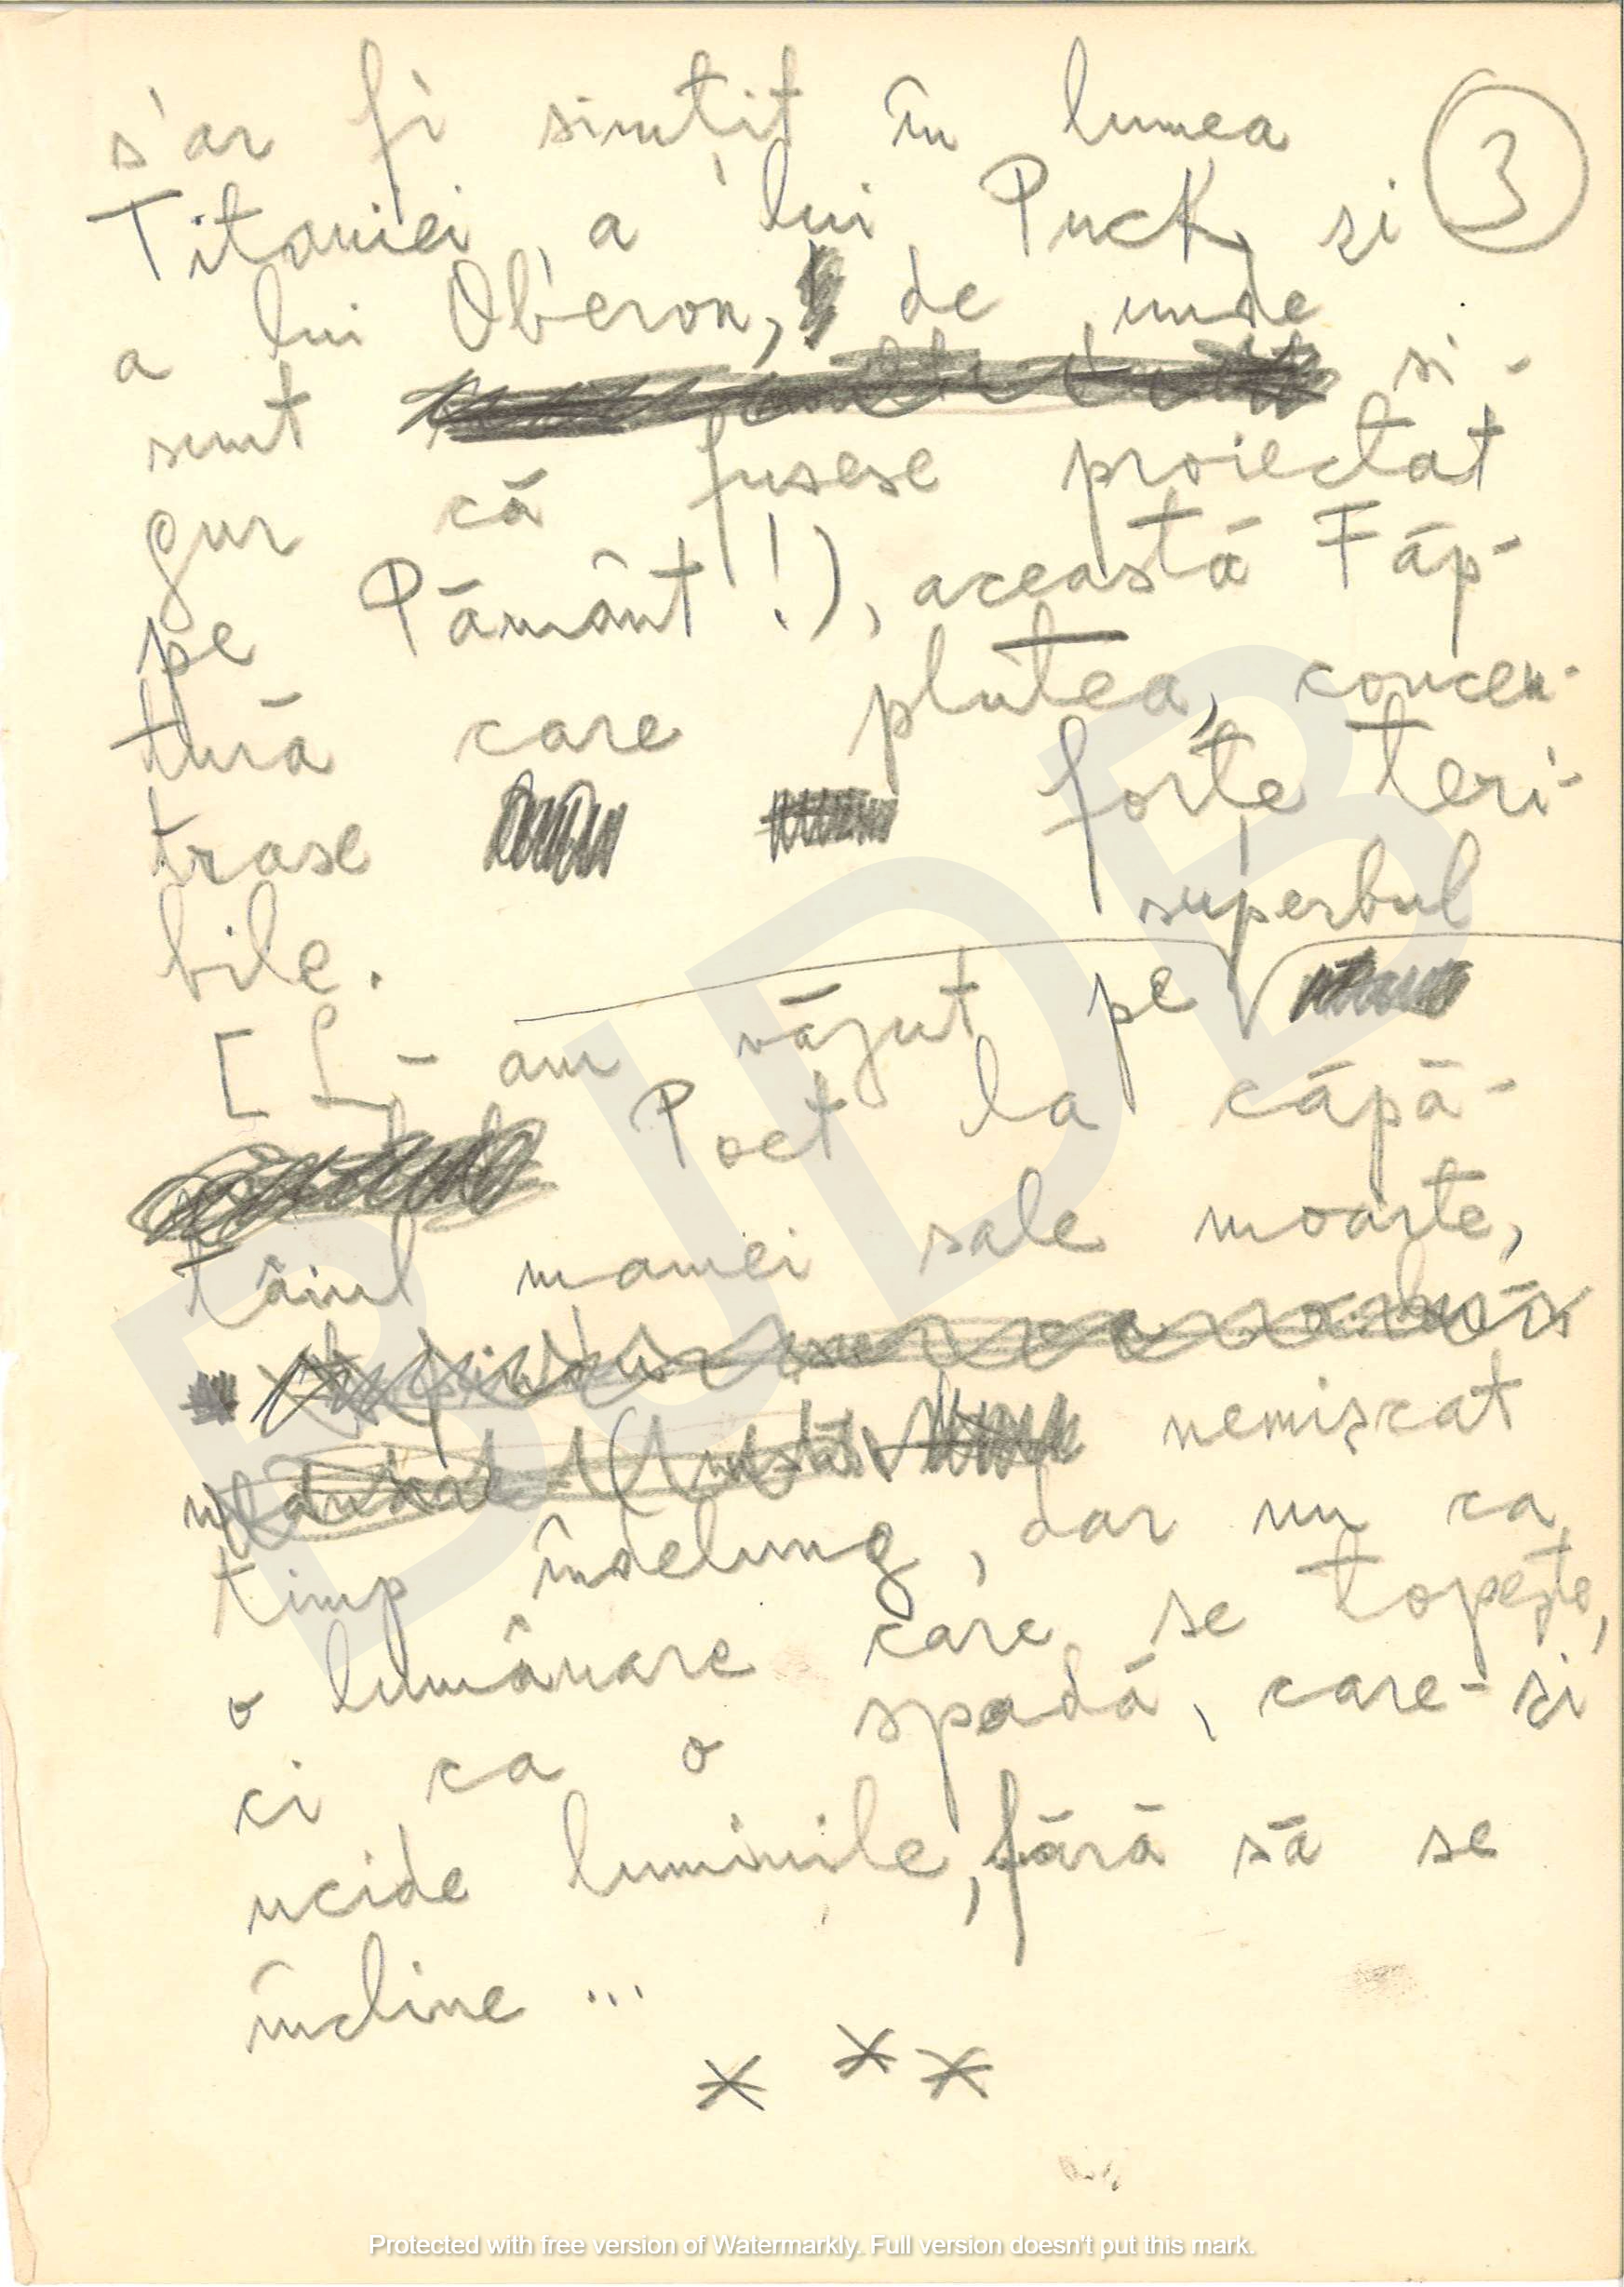 s'ar fi simțit în lumea
Titaniei, a lui Puck, și
③
a lui Oberon, de unde
sunt si-
gur că fusese proiectat
pe Pământ!), această Făp-
tură care plutea, concen-
trase forțe teri-
bile.
superbul
[L-am văzut pe
Poet la căpă-
tâiul mamei sale moarte,
nemișcat
timp îndelung, dar nu ca
o lumânare care se topește,
ci ca o spadă, care-și
ucide luminile, fără să se
incline ...
* * *
BJDB
Protected with free version of Watermarkly. Full version doesn't put this mark.